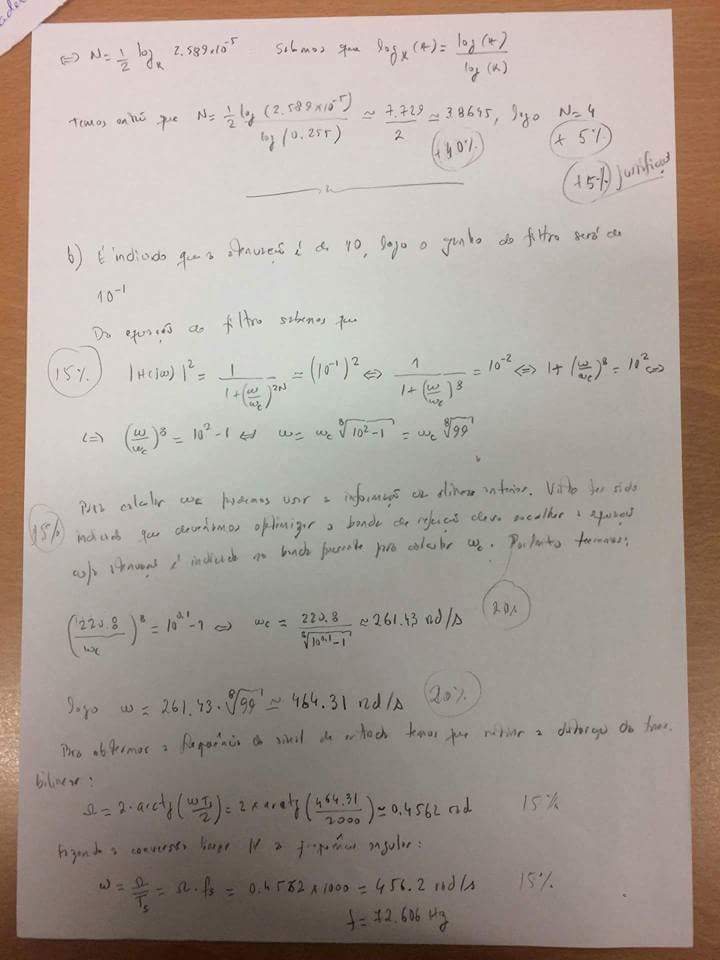 ⇔ N = 1/2 log_K 2.589×10^-5 Sabemos que log_K(A) = log(A)/log(K)
temos então que N = 1/2 log(2.589×10^-5)/log(0.255) ≃ 7.729/2 ≃ 3.8645, logo N=4
+40% + 5%
+5% justificar
b) É indicado que a atenuação é de 10, logo o ganho do filtro será de
10^-1
Da equação do filtro sabemos que
15% |H(jω)|^2 = 1/(1+(ω/ωc)^2N) = (10^-1)^2 ⇔ 1/(1+(ω/ωc)^8) = 10^-2 ⇔ 1+(ω/ωc)^8 = 10^2 ⇔
⇔ (ω/ωc)^8 = 10^2-1 ⇔ ω = ωc ⁸√(10^2-1) = ωc ⁸√99
Para calcular ωc podemos usar a informação da alínea anterior. Visto ter sido
15% indicado que deveríamos optimizar a banda de rejeição devo escolher a equação
cuja atenuação é indicada na banda passante para calcular ωc. Portanto teremos:
(220.8/ωc)^8 = 10^0.1-1 ⇔ ωc = 220.8/⁸√(10^0.1-1) ≃ 261.43 rad/s 20%
logo ω = 261.43·⁸√99 ≃ 464.31 rad/s 20%
Para obtermos a frequência do sinal de entrada temos que retirar a distorção da trans.
bilinear:
Ω = 2·arctg(ωTs/2) = 2×arctg(464.31/2000) ≃ 0.4562 rad 15%
Fazendo a conversão para a frequência angular:
ω = Ω/Ts = Ω·fs = 0.4562×1000 = 456.2 rad/s 15%
f = 72.606 Hz